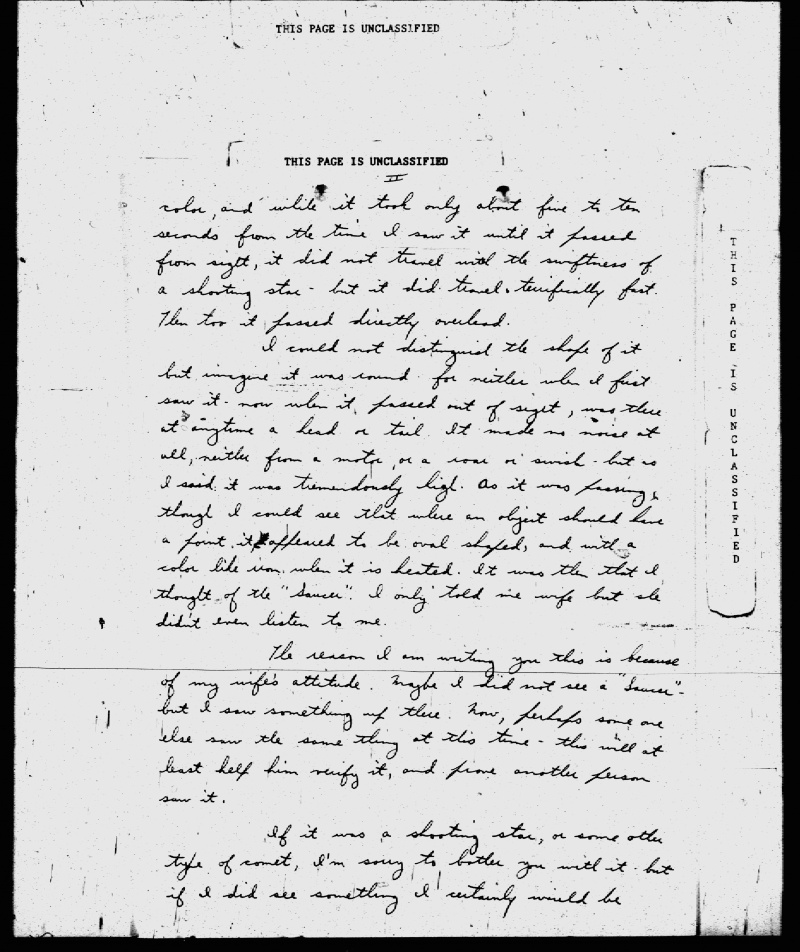 THIS PAGE IS UNCLASSIFIED
THIS PAGE IS UNCLASSIFIED
II
color, and while it took only about five to ten
seconds from the time I saw it until it passed
from sight, it did not travel with the swiftness of
a shooting star - but it did travel terrifically fast.
Then too it passed directly overhead.
I could not distinguish the shape of it
but imagine it was round for neither when I first
saw it - now when it passed out of sight, was there
at anytime a head or tail. It made no noise at
all, neither from a motor, or a roar or swish - but as
I said it was tremendously high. As it was passing,
though I could see that where an object should have
a point it appeared to be oval shaped, and with a
color like iron when it is heated. It was then that I
thought of the "Saucer". I only told me wife but she
didn't even listen to me.
The reason I am writing you this is because
of my wife's attitude. Maybe I did not see a "Saucer" -
but I saw something up there. Now, perhaps some one
else saw the same thing at this time - this will at
least help him verify it, and prove another person
saw it.
If it was a shooting star, or some other
type of comet, I'm sorry to bother you with it - but
if I did see something I certainly would be
THIS PAGE IS UNCLASSIFIED